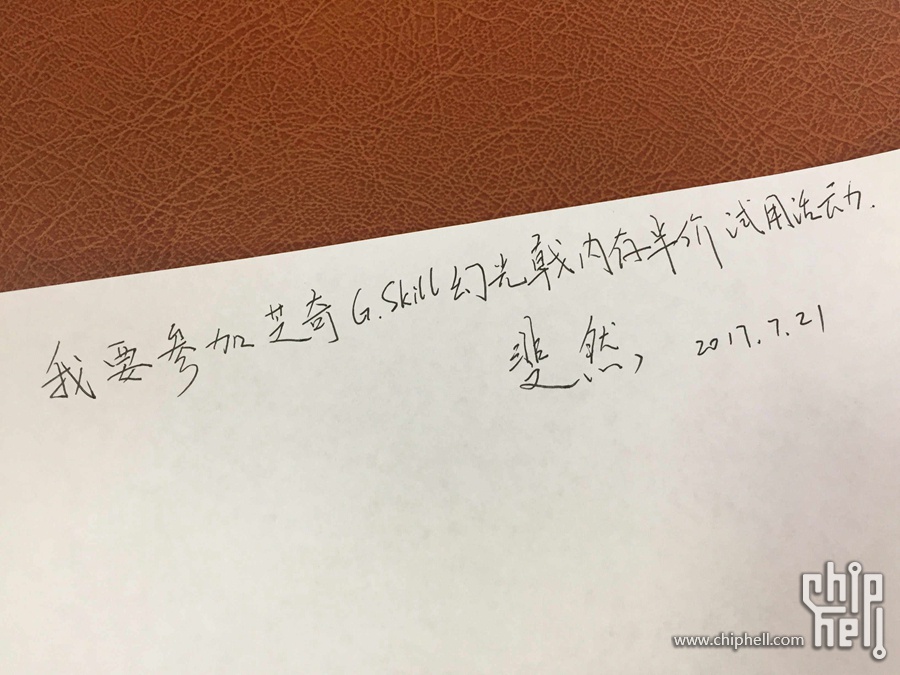 我要参加芝奇G.Skill幻光戟内存半价试用活动.
斐然, 2017.7.21
chip hell
www.chiphell.com